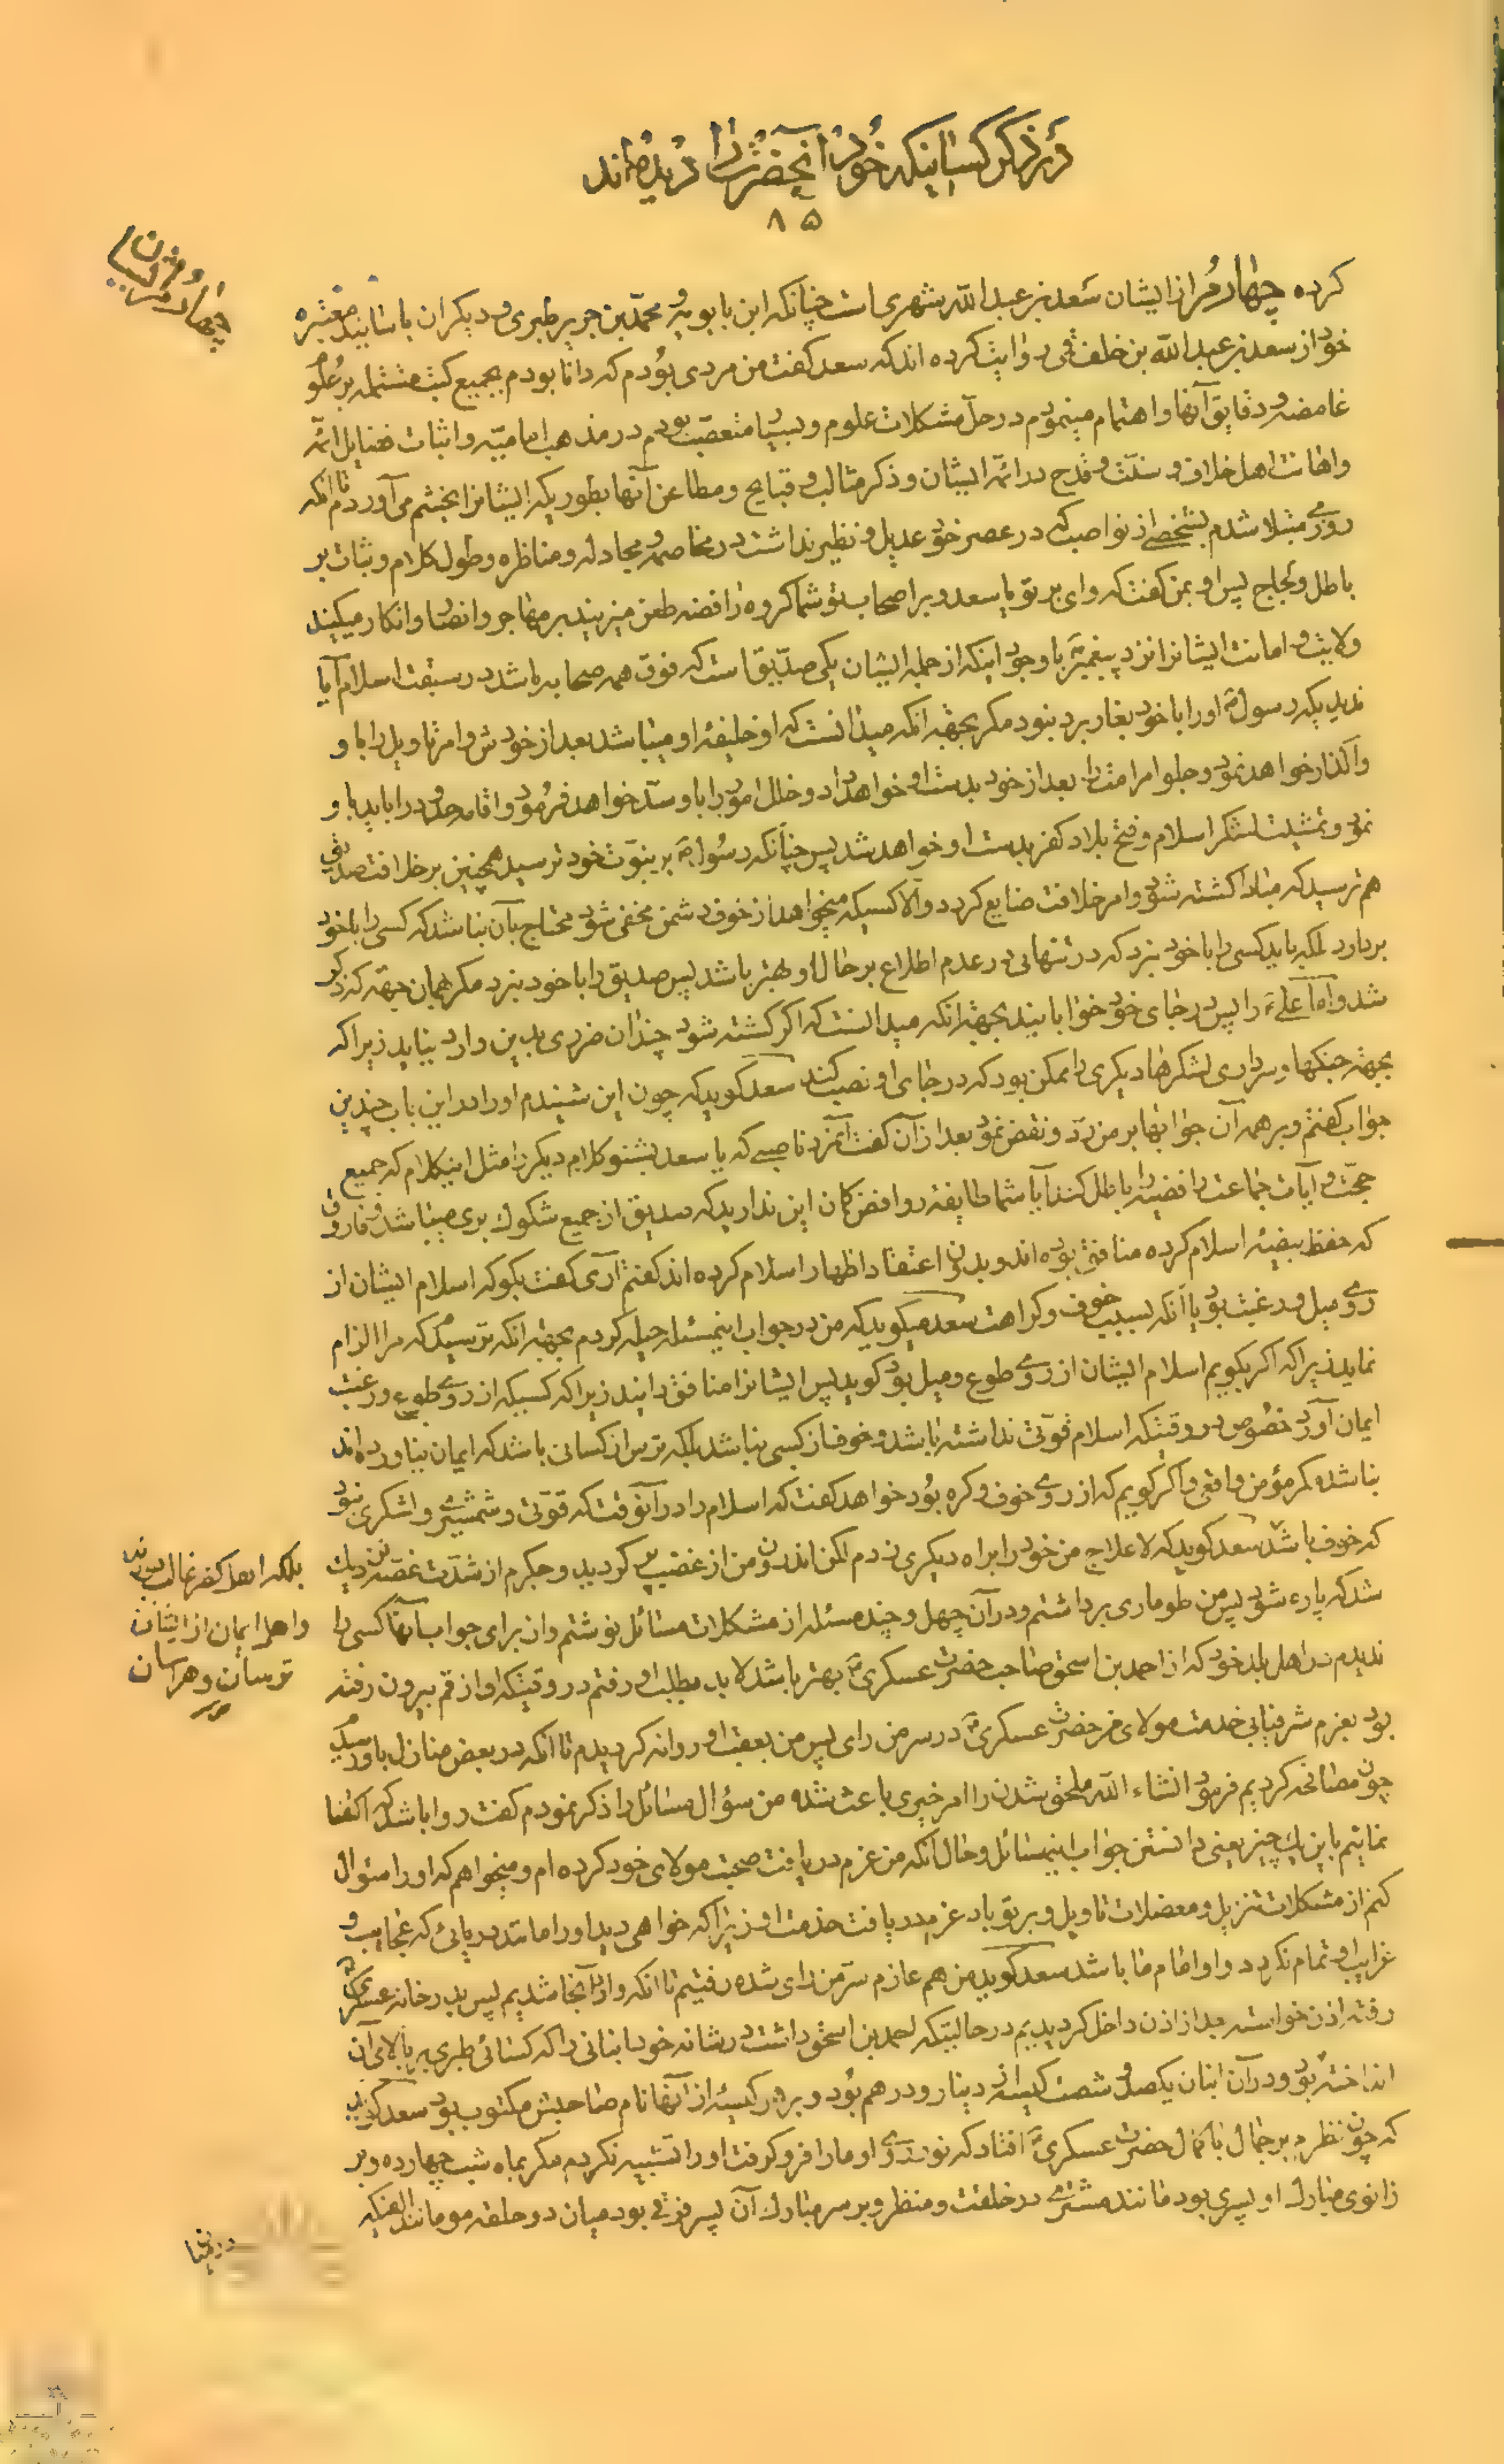 در ذکر کسانیکه خود آنحضرت را دیده‌اند
۸۵
چهارم از ایشان
کرده چهارم از ایشان سعد بن عبدالله شهری است چنانکه ابن بابویه و محمد بن جریر طبری و دیگران باسانید معتبره
خود از سعد بن عبدالله بن خلف قمی روایت کرده اند که سعد گفت من مردی بودم که دانا بودم بجمیع کتب مشتمله بر علوم
غامضه و دقایق آنها و اهتمام مینمودم در حل مشکلات علوم و بسیار متعصب بودم در مذهب امامیه و اثبات فضایل ائمه
و اهانت اهل خلاف و سنت و قدح در ائمه ایشان و ذکر مثالب و قبایح و مطاعن آنها بطوریکه ایشانرا بخشم می آوردم تا انکه
روزی مبتلا شدم بشخصی از نواصب که در عصر خود عدیل و نظیر نداشت در مخاصمه و مجادله و مناظره و طول کلام و ثبات بر
باطل و لجاج پس او بمن گفت که وای بر تو یا سعد و بر اصحاب تو شما گروه رافضه طعن میزنید بر مهاجر و انصار و انکار میکنید
ولایت و امانت ایشانرا نزد پیغمبر با وجود اینکه از جمله ایشان یکی صدیق است که فوق همه صحابه باشد در سبقت اسلام آیا
ندیدید که رسول ص او را با خود بغار برد نبود مگر بجهة انکه میدانست که او خلیفه او میباشد بعد از خودش و امر تاویل را باو
واگذار خواهد نمود و جلو امر امت را بعد از خود بدست او خواهد داد و خلل امور را باو سد خواهد فرمود و اقامه حدود را باید باو
نمود و تمشیت لشکر اسلام و فتح بلاد کفر بدست او خواهد شد پس چنانکه رسول ص بر نبوت خود ترسید همچنین بر خلافت صدیق
هم ترسید که مبادا کشته شود و امر خلافت ضایع گردد والا کسیکه میخواهد از خوف دشمن مخفی شود محتاج بآن نباشد که کسی را با خود
بردارد بلکه باید کسی را با خود نبرد که در تنهائی در عدم اطلاع بر حال او بهتر باشد پس صدیق را با خود نبرد مگر همان جهة که ذکر
شد و اما علی ع را پس در جای خود خوابانید بجهة انکه میدانست که اگر کشته شود چندان ضرری بدین وارد نیاید زیرا که
بجهة جنگها و سرداری لشکرها دیگری را ممکن بود که در جای او نصب کند سعد گوید که چون این شنیدم او را در این باب چندین
جواب گفتم و بر همه آن جوابها بر من رد و نقض نمود بعد از آن گفت آنمرد ناصبی که یا سعد بشنو کلام دیگر را مثل اینکلام که جمیع
حجت و آیات جماعت رافضیه را باطل کند آیا شما طایفه روافض گمان این ندارید که صدیق از جمیع شکوک بری میباشد و فاروق
که حفظ بیضه اسلام کرده منافق بوده اند و بدون اعتقاد اظهار اسلام کرده اند گفتم آری گفت بگو که اسلام ایشان از
روی میل و رغبت بود یا آنکه بسبب خوف و کراهت سعد میگوید که من در جواب اینمسئله حیله کردم بجهة انکه ترسیدم که مرا الزام
نماید زیرا که اگر بگویم اسلام ایشان از روی طوع و میل بود گوید پس ایشانرا منافق دانید زیرا که کسیکه از روی طوع و رغبت
ایمان آورد خصوص در وقتیکه اسلام قوتی نداشته باشد و خوف از کسی نباشد بلکه ترس از کسانی باشد که ایمان نیاورده اند
نباشد مگر مؤمن واقعی و اگر گویم که از روی خوف و کره بود خواهد گفت که اسلام را در آنوقت که قوتی و شمشیری و لشکری نبود
که خوف باشد سعد گوید که لاعلاج من خود را براه دیگری زدم لکن اندرون من از غضب پر گردید و جگرم از شدت غصه نزدیک
بلکه اهل کفر غالب بودند
و اهل ایمان از ایشان
ترسان و هراسان
شد که پاره شود پس من طوماری برداشتم و در آن چهل و چند مسئله از مشکلات مسائل نوشتم و از برای جواب آنها کسی را
ندیدم در اهل بلد خود که از احمد بن اسحق صاحب حضرت عسکری ع بهتر باشد لابد بطلب او رفتم در وقتیکه او از قم بیرون رفته
بود بعزم شرفیابی خدمت مولای من حضرت عسکری ع در سر من رای پس من بعقب او روانه گردیدم تا انکه در بعض منازل باو رسیدم
چون مصافحه کردیم فرمود انشاء الله ملحق شدن را امر خیری باعث شده من سؤال مسائل را ذکر نمودم گفت روا باشد که اکتفا
نمائیم باین یک چیز یعنی دانستن جواب اینمسائل و حال آنکه من عزم دریافت صحبت مولای خود کرده ام و میخواهم که او را سئوال
کنم از مشکلات تنزیل و معضلات تاویل و بر تو باد عزم دریافت خدمت او زیرا که خواهی دید او را مانند دریائی که عجایب و
غرایب او تمام نگردد و او امام ما باشد سعد گوید من هم عازم سر من رای شده رفتیم تا انکه وارد آنجا شدیم پس بدر خانه عسکری ع
رفته اذن خواسته بعد از اذن داخل گردیدیم در حالتیکه احمد بن اسحق داشت در شانه خود انبانی را که کسائی طبری بر بالای آن
انداخته بود و در آن انبان یکصد و شصت کیسه از دینار و درهم بود و بر هر کیسه از آنها نام صاحبش مکتوب بود سعد گوید
که چون نظرم بر جمال با کمال حضرت عسکری ع افتاد که نور روی او ما را فرو گرفت او را تشبیه نکردم مگر بماه شب چهارده و بر
زانوی مبارک او پسری بود مانند مشتری در خلقت و منظر و بر سر مبارک آن پسر فرقی بود میان دو حلقه مو مانند الفیکه
در میان